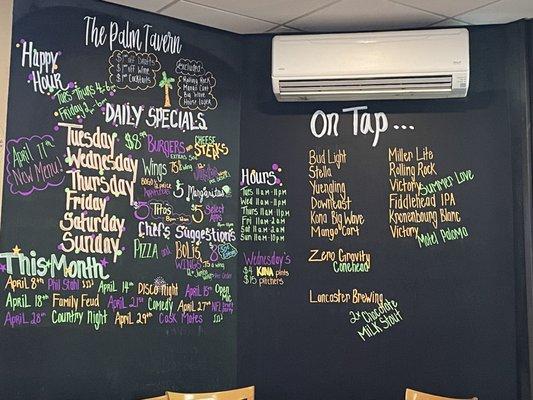 The Palm Tavern
Happy Hour
Tues-Thurs 4-6
Friday 2-6
$1 off Drafts
$1 off Wine
$1 off Cocktails
Excluded:
Rolling Rock
Mango Cart
Big Wave
House Wine
April 11th
New Menu!
DAILY SPECIALS
Tuesday $8 BURGERS CHEESE STEAKS
Wednesday Wings 75¢
Thursday $5 Margaritas
Friday $5 Titos $5 Select Apps
Saturday Chef's Suggestions
Sunday PIZZA BOLIS $8
WINGS 75¢ a wing
Hours:
Tues 11am-11pm
Wed 11am-11pm
Thurs 11am-11pm
Fri 11am-2am
Sat 11am-2am
Sun 11am-10pm
Wednesday's
$4 KONA pints
$15 pitchers
This Month
April 8th Phil Stahl April 14th DISCO Night April 15th Open Mic
April 18th Family Feud April 21st Comedy April 27th NFL Draft Party
April 28th Country Night April 29th Cask Mates
On Tap...
Bud Light
Stella
Yuengling
Downeast
Kona Big Wave
Mango Cart
Miller Lite
Rolling Rock
Victory Summer Love
Fiddlehead IPA
Kronenbourg Blanc
Victory Motel Palomo
Zero Gravity
Conehead
Lancaster Brewing
2x Chocolate
MILK STOUT